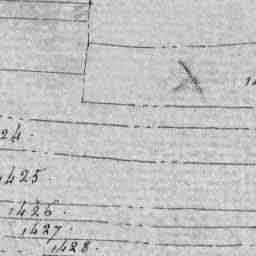 24.
1425.
1426.
1427.
1428.